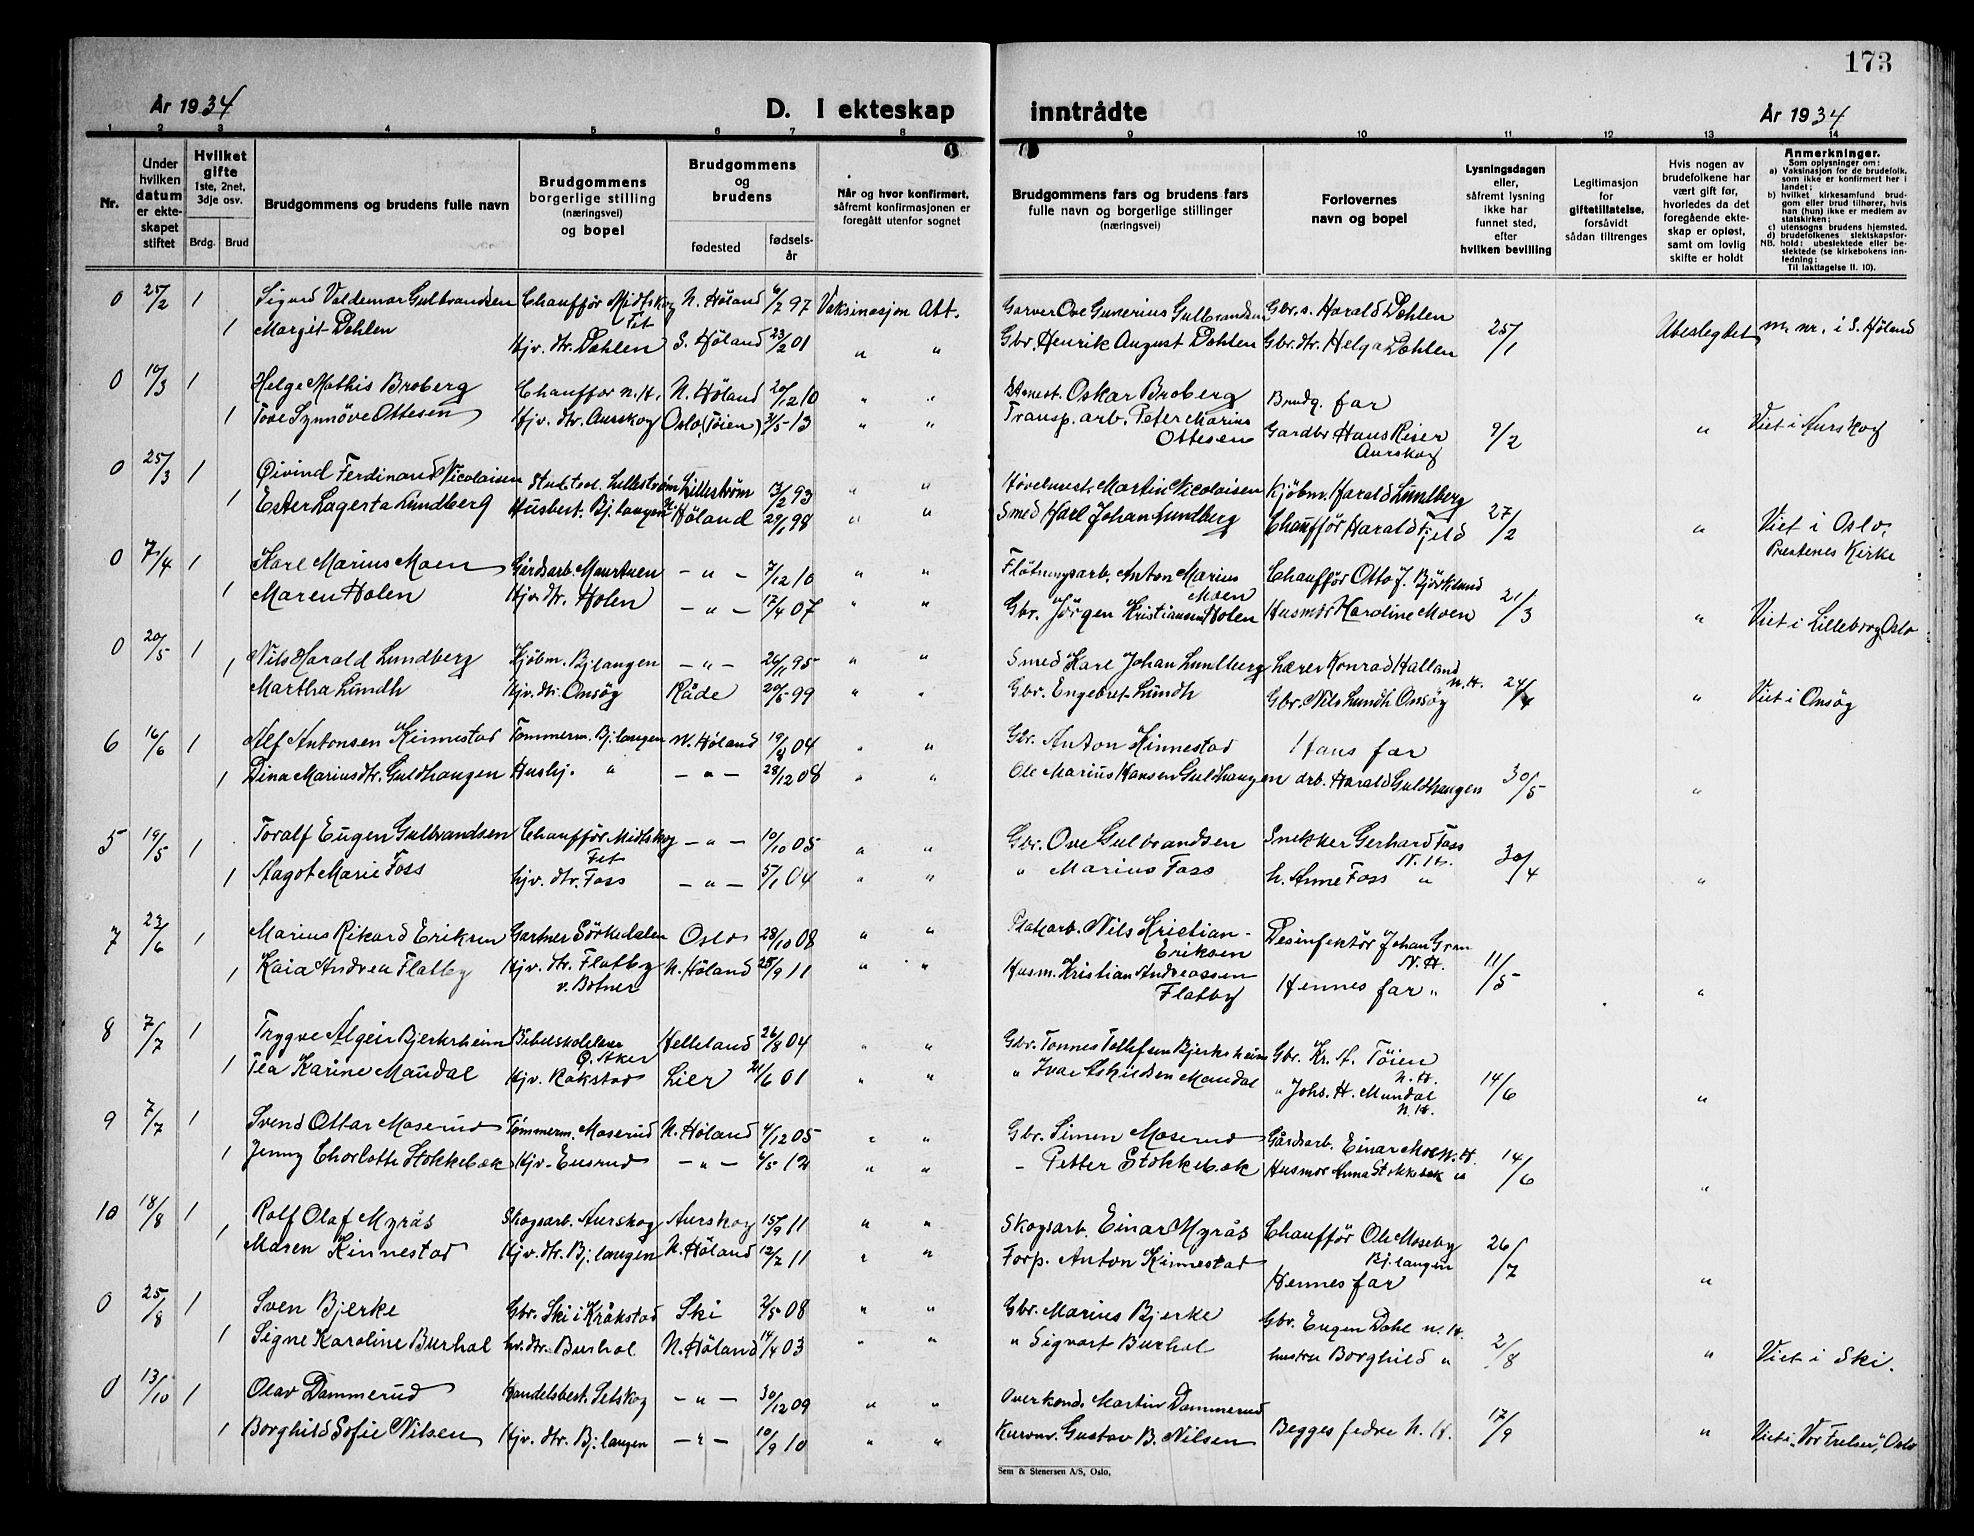 173
År 1934 D. I ekteskap inntrådte År 1934
1 2 3 4 5 6 7 8 9 10 11 12 13 14
Nr.
Under hvilken datum er ekteskapet stiftet
Hvilket gifte 1ste, 2net, 3dje osv.
Brdg. Brud
Brudgommens og brudens fulle navn
Brudgommens borgerlige stilling (næringsvei) og bopel
Brudgommens og brudens
fødested fødselsår
Når og hvor konfirmert, såfremt konfirmasjonen er foregått utenfor sognet
Brudgommens fars og brudens fars fulle navn og borgerlige stillinger (næringsvei)
Forlovernes navn og bopel
Lysningsdagen eller, såfremt lysning ikke har funnet sted, efter hvilken bevilling
Legitimasjon for giftetillatelse, forsåvidt sådan tiltrenges
Hvis nogen av brudefolkene har vært gift før, hvorledes da det foregående ekteskap er opløst, samt om lovlig skifte er holdt
Anmerkninger.
Som oplysninger om:
a) Vaksinasjon for de brudefolk, som ikke er konfirmert her i landet;
b) hvilket kirkesamfund brudgom eller brud tilhører, hvis han (hun) ikke er medlem av statskirken;
c) utensogns brudens hjemsted.
d) brudefolkenes slektskapsforhold: ubeslektede eller beslektede (se kirkebokens innledning:
NB. Til iakttagelse II. 10).
0 25/2 1 Sigurd Valdemar Gulbrandsen Chauffør Midtskog Fet N. Høland 6/2 97 Vaksinasjon Att. Garver Ove Gunerius Gulbrandsen Gbr.s. Harald Dahlen
1 Margit Dahlen Hjv. dtr. Dahlen S. Høland 23/2 01 " " Gbr. Henrik August Dahlen Gbr. dtr. Helga Dahlen 25/1 Ubeslegtet m. nr. i S. Høland
0 10/3 1 Helge Mathis Broberg Chauffør N.H. N. Høland 20/12 10 " " Oskar Broberg Brudg. far
1 Tove Synnöve Ottesen Hjv. dtr. Aurskog Oslo (Töien) 3/5 13 " " Transp. arb. Peter Marius Ottesen Gardbr Hans Riser Aurskog 9/2 " Viet i Aurskog
0 25/3 1 Øivind Ferdinand Nicolaisen Lillestrøm Lillestrøm 13/2 93 " " Martin Nicolaisen Kjøbm. Harald Lundberg
1 Ester Lagerta Lundberg Husbest. Bj. langen N. Høland 29/1 98 " " Smed Karl Johan Lundberg Chauffør Harald Fjeld 27/2 " Viet i Oslo, Prestenes Kirke
0 7/4 1 Karl Marius Moen Gårdsarb. - " - 7/12 10 " " Fløtningsarb. Anton Marius Moen Chauffør Otto J. Björklund
1 Maren Holen Hjv. dtr. Holen - " - 17/4 07 " " Gbr. Jörgen Kristiansen Holen Husmor Karoline Moen 21/3 " Viet i Lilleborg, Oslo
0 20/5 1 Nils Harald Lundberg Kjöbm. Bj. langen - " - 26/11 95 " " Smed Karl Johan Lundberg Lærer Konrad Halland N.H.
1 Martha Lundh Hjv. dtr. Onsög Råde 20/5 99 " " Gbr. Engebret Lundh Gbr. Nils Lundh Onsög 24/4 " Viet i Onsög
6 16/6 1 Alf Antonsen Kinnestad Tömmerm. Bj. langen N. Høland 19/8 04 " " Gbr. Anton Kinnestad Hans far
1 Dina Mariusdtr. Guldhaugen Hushj. " - " - 28/12 08 " " Ole Marius Hansen Guldhaugen arb. Harald Guldhaugen 30/5 "
5 19/5 1 Toralf Eugen Gulbrandsen Chauffør Midtskog Fet - " - 10/10 05 " " Gbr. Ove Gulbrandsen Snekker Gerhard Foss N.H.
1 Aagot Marie Foss hjv. dtr. Foss - " - 5/1 04 " " " Marius Foss h. Anne Foss " 30/4 "
7 23/6 1 Marius Rikard Eriksen Gartner Sörkedalen Oslo 28/10 08 " " Nils Kristian Eriksen Desinfektör Johan Gran N.H.
1 Kaia Andrea Flatby Hjv. dtr. Flatby v. Botner N. Høland 25/9 11 " " Husm. Kristian Andreassen Flatby Hennes far " 11/5 "
8 7/7 1 Trygve Algeir Bjerkrheim Bibelskoleelev Ö. Aker Helleland 26/8 04 " " Gbr. Tönnes Tollefsen Bjerkrheim Gbr. Kr. A. Töien N.H.
1 Tea Karine Maudal Hjv. Rakstad Lier 21/6 01 " " " Ivar Askildsen Maudal " Johs. H. Mundal N.H. 14/6 "
9 7/7 1 Svend Ottar Moserud Tömmerm. Moserud N. Høland 4/12 05 " " Gbr. Simen Moserud Gårdsarb. Einar Moe N.H.
1 Jenny Charlotte Stokkebæk Hjv. Eusrud - " - 6/5 12 " " - Petter Stokkebæk Husmor Anna Stokkebæk " 14/6 "
10 18/8 1 Rolf Olaf Myrås Skogsarb. Aurskog Aurskog 15/9 11 " " Skogsarb. Einar Myrås Chauffør Ole Moseby Bj. langen
1 Maren Kinnestad Hjv. dtr. Bj. langen N. Høland 12/2 11 " " Forp. Anton Kinnestad Hennes far 26/7 "
0 25/8 1 Sven Bjerke Gbr. Ski i Kråkstad Ski 2/5 08 " " Gbr. Marius Bjerke Gbr. Eugen Dahl N.H.
1 Signe Karoline Burhol hv. dtr. Burhol N. Høland 14/4 03 " " " Sigvart Burhol hustru Borghild " 2/8 " Viet i Ski.
0 13/10 1 Olav Dammerud Handelsbest. Setskog - " - 30/12 09 " " Overkond. Martin Dammerud
1 Borghild Sofie Nilsen Hjv. dtr. Bj. langen - " - 10/9 10 " " Gustav B. Nilsen Begges fedre N.H. 17/9 " Viet i "Vor Frelser", Oslo
Sem & Stenersen A/S, Oslo.